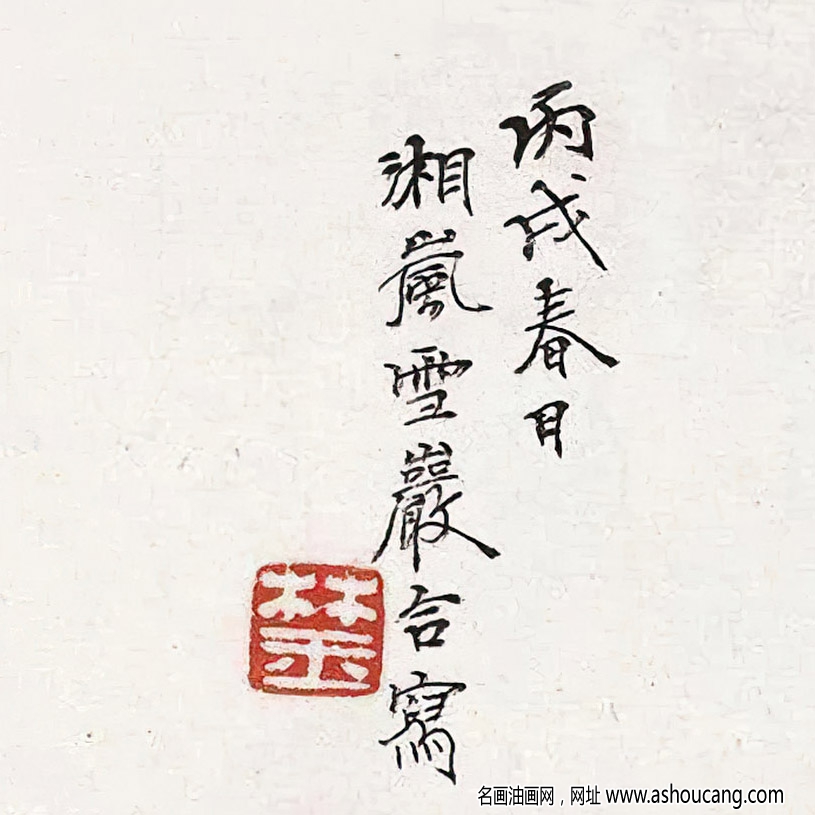 丙戌春日
湘嵐雪巖合寫
名画油画网，网址 www.ashoucang.com